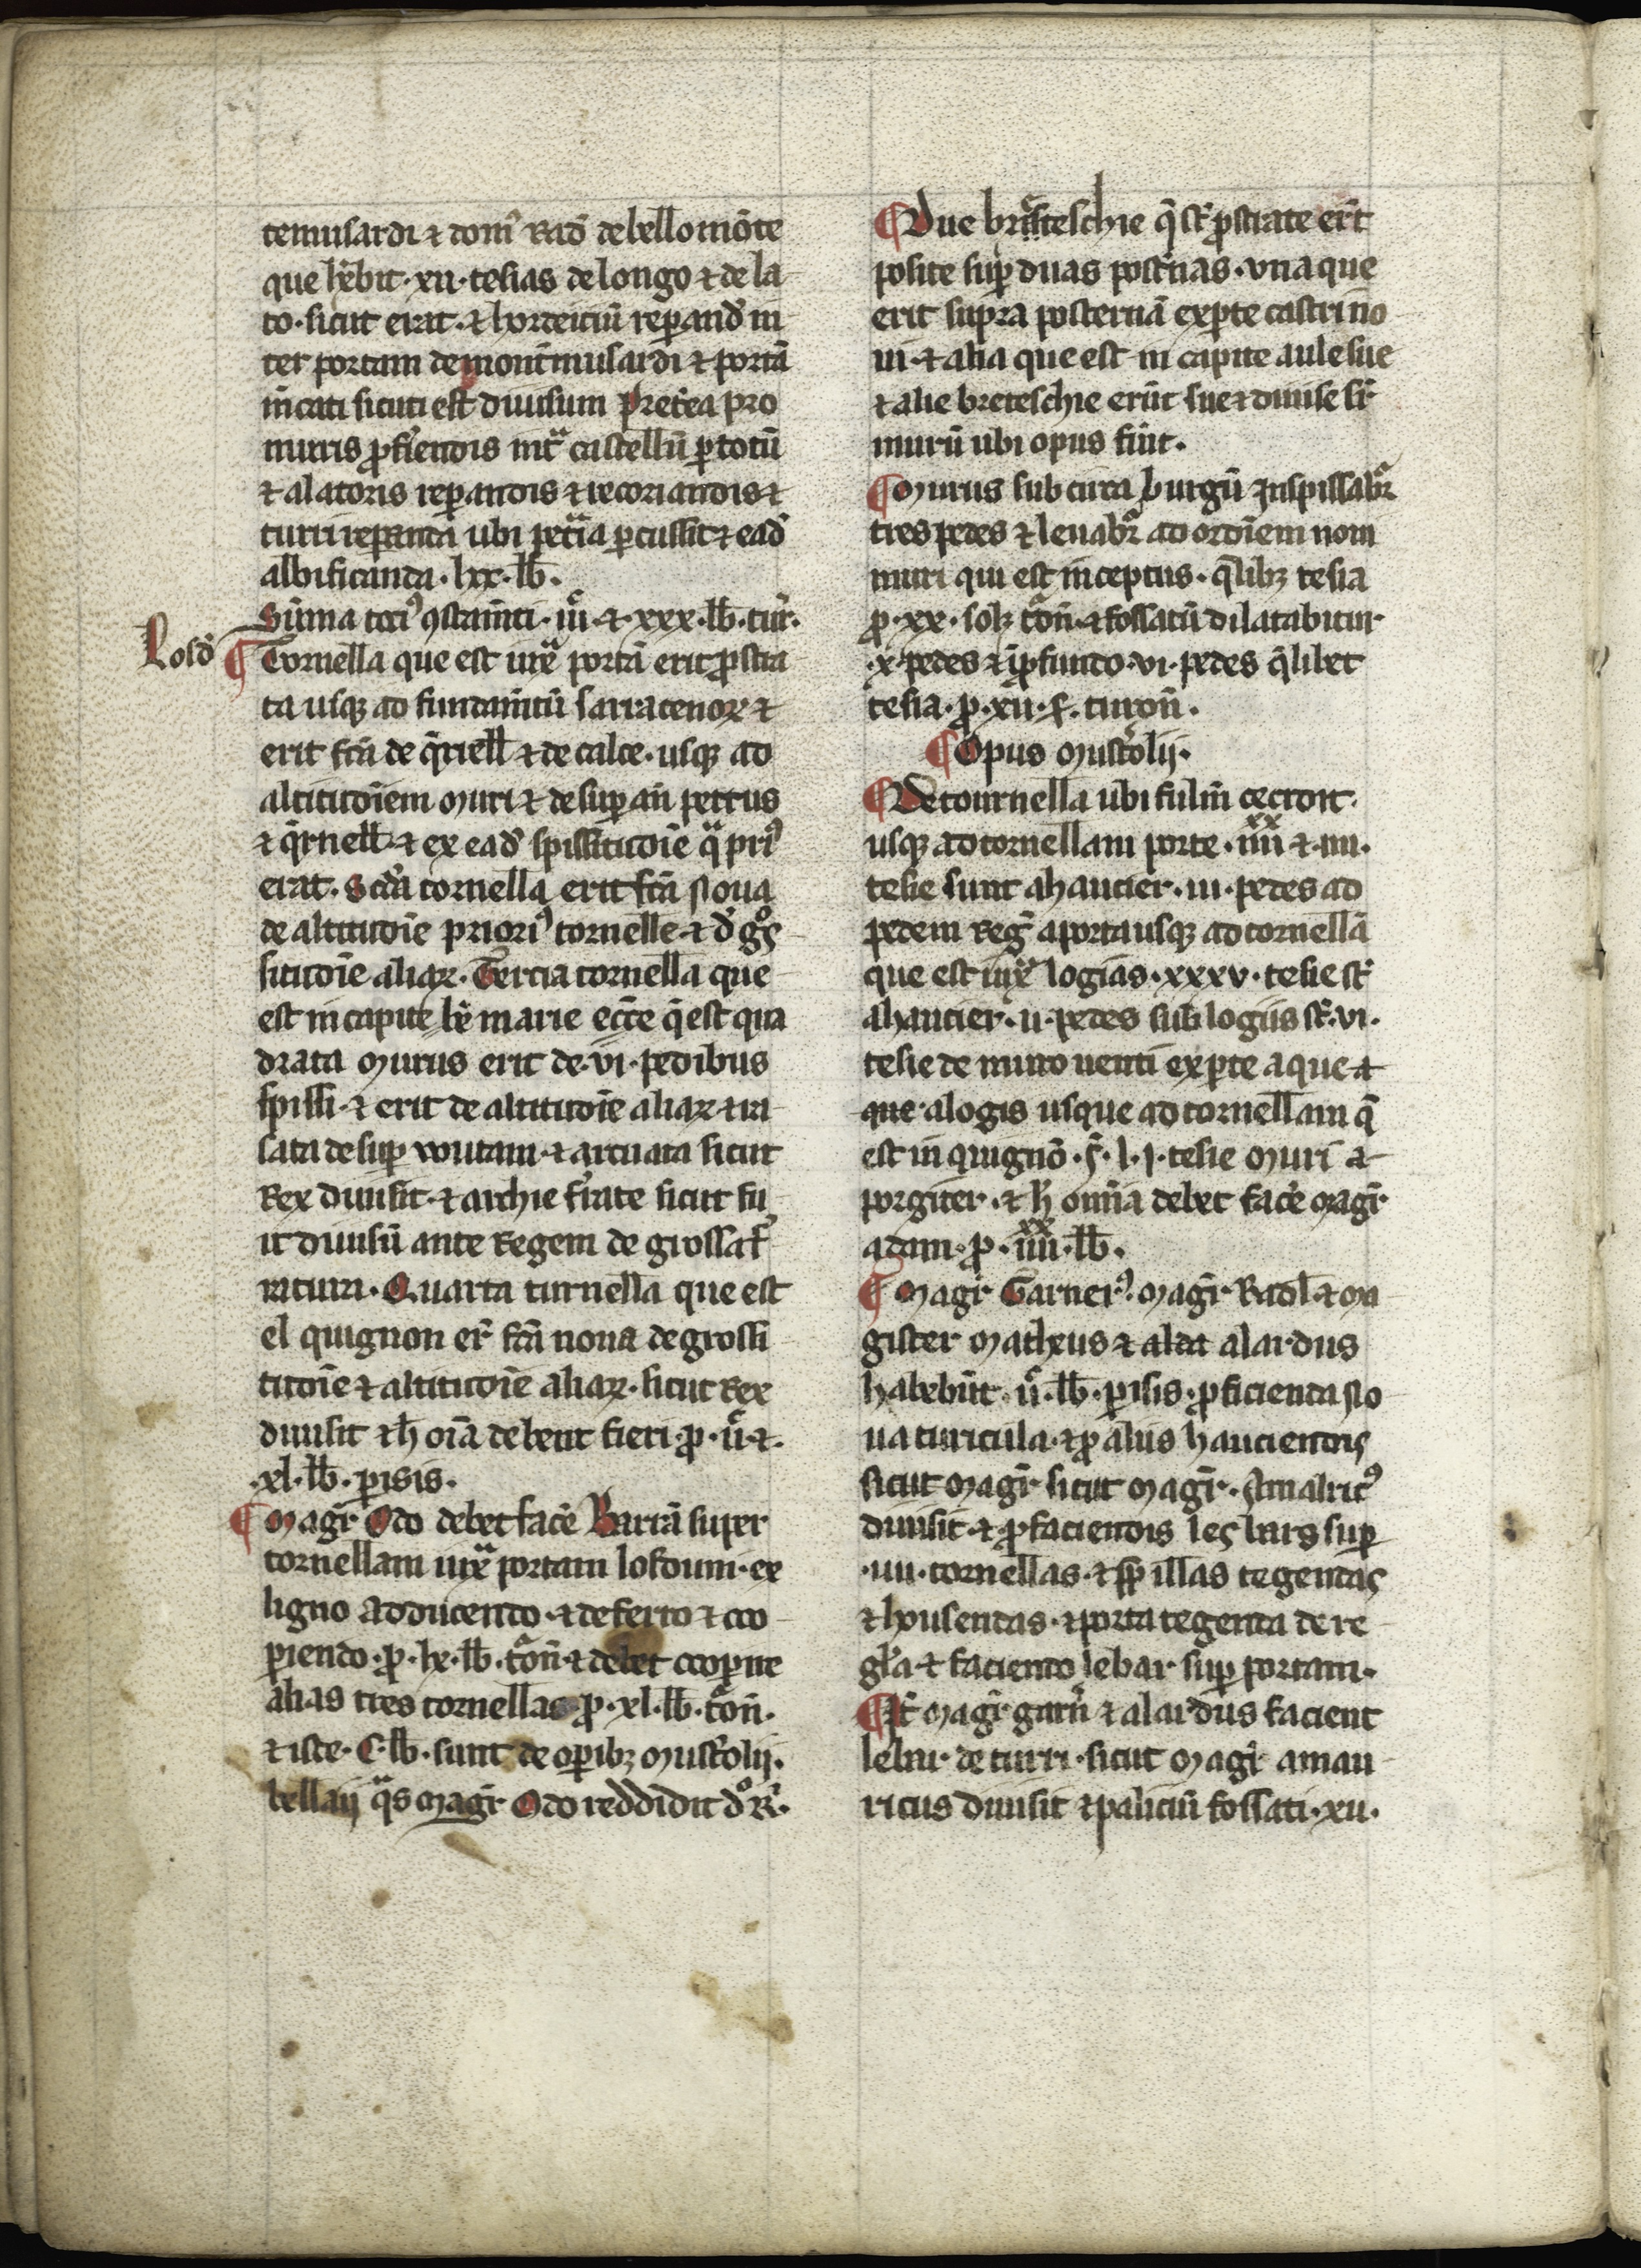 temusardi ⁊ dom̄ Rad̄ de bello mōte
que hēbit · xii · tesias de longo ⁊ de la
to · sicut erat · ⁊ hordeiciū reparand̄ in
ter portam de montmusardi ⁊ portā
sicuti est diuisum Pret̄ea pro
muris ꝓficiendis int̄ castellū ꝑ totū
⁊ alatoris reꝑandis ⁊ recoriandis ⁊
turri reparanda ubi petͥa ꝑcussit ⁊ ead̄
albificanda · lxx · lb̄ ·
Sūma tociꝰ ꝯstam̄ti · iii͛ · ⁊ · xxx · lb̄ · tur̄ ·
Losd̄
¶ Tornella que est iuxͣ portā erit ꝓstra
ta usqꝫ ad fundam̄tū sarracenoꝝ ⁊
erit fc̄a de q̄riell̄ ⁊ de calce · usqꝫ ad
altitudīem muri ⁊ desuꝑ an̄ pectus
⁊ q̄rnell̄ · ⁊ ex ead̄ spissitudīe qͣ priꝰ
erat · Scd̄a tornella erit fc̄a noua
de altitudīe prioriꝰ tornelle ⁊ d̄ gͦs
situdīe aliaꝝ · Tercia tornella que
est in capite bē marie ecc̄e q̄ est qua
drata murus erit de · vi · pedibus
spissi · ⁊ erit de altitudīe aliaꝝ ⁊ ui
sata desuꝑ voutam · ⁊ arcuata sicut
Rex diuisit · ⁊ archie ferrate sicut fu
it diuisū ante Regem de grossa f̄
ritura · Quarta turnella que est
el quignon er̄ fc̄a noua de grossi
tudīe ⁊ altitudīe aliaꝝ · sicut Rex
diuisit ⁊ h̄ oīa debent fieri · ꝓ · ii͛ · ⁊ ·
· xl · lb̄ · ꝑisis ·
¶ Magr̄ Odo debet facē Barrā super
tornellam iuxͣ portam losduni · ex
ligno adducendo · ⁊ de ferro ⁊ coo
ꝑiendo · ꝓ · lx · lb̄ · tōn · ⁊ debet cooꝑire
alias tres tornellas · ꝓ · xl · lb̄ · tōn ·
⁊ iste · C · lb̄ · sunt de oꝑibꝫ mustolij ·
bellaij qͣs magr̄ Odo reddidit dͦ R̄ ·
¶ Due breteschie q̄ st̄ ꝓstrate er̄t
posite suꝑ duas post̄nas · vna que
erit supra posternā ex ꝑte castri no
ui · ⁊ alia que est in capite aule sue
⁊ alie breteschie erūt sue ⁊ diuise sr̄
murū ubi opus fūit ·
¶ Murus sub circa burgū inspissabr̄
tres pedes ⁊ leuabr̄ ad ordīem noui
muri qui est inceptus · q̄libꝫ tesia
ꝓ · xx · solꝫ tōn · ⁊ fossatū dilatabitur
· x · pedes ⁊ in ꝓfundo · vi · pedes q̄libet
tesia · ꝓ · xii · s̄ · turon̄ ·
¶ Opus mustolij ·
¶ De tournella ubi fulm̄ cecidit
usqꝫ ad tornellam porte · iiiiˣˣ ⁊ · iiii ·
tesie sunt ahaucier · iii · pedes ad
pedem Reḡ a porta usqꝫ ad tornellā
que est iuxͣ logias · xxxv · tesie st̄
ahaucier · ii · pedes sub logiis st̄ · vi ·
tesie de muro uenti ex ꝑte aque ⁊
que · a logis usque ad tornellam q̄
est in quignō · s̄ · l · j · tesie muri a
porgiter · ⁊ h̄ omīa debet facē magr̄
adam · ꝓ · iiiiˣˣ · lb̄ ·
¶ Magr̄ Garnerꝰ · magr̄ Radl̄ · ⁊ ma
gister matheus ⁊ alda alardus
habebūt · ii͛ · lb̄ · ꝑisis · ꝓ ficienda no
ua turicula · ⁊ ꝓ aliis hauciendis
sicut magr̄ sicut magr̄ · Amalricꝰ
diuisit · ⁊ ꝓ faciendis les bars suꝑ
· iiii · tornellas · ⁊ sꝑ illas tegendas
⁊ housendas · ⁊ porta tegenda de re
gla ⁊ faciendo le bar suꝑ portam ·
¶ It̄ magr̄ garn̄ ⁊ alardus facient
le bar de turri · sicut magr̄ amau
ricus diuisit ⁊ paliciū fossati · xii ·